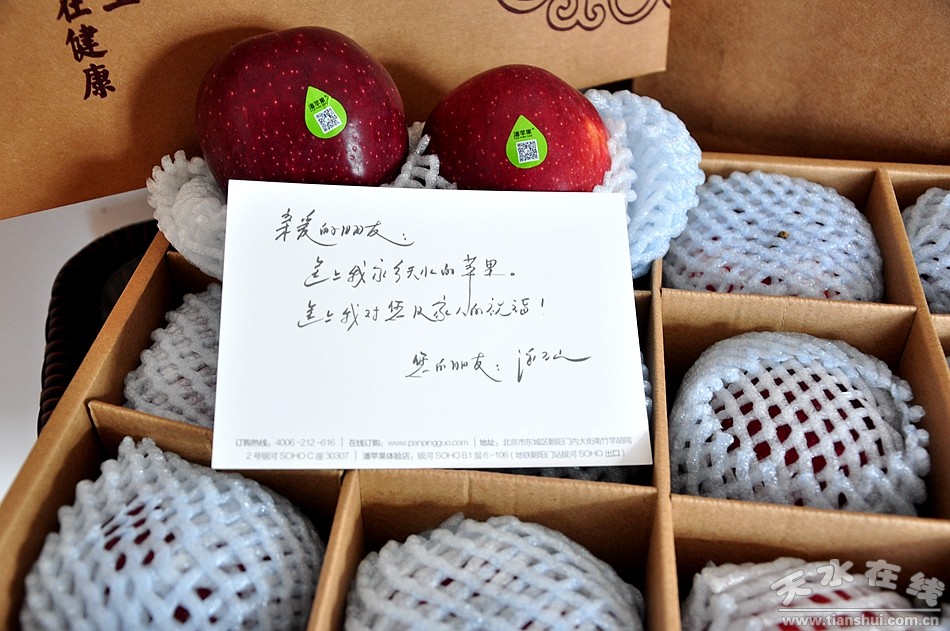 在健康
潘苹果
潘苹果
亲爱的朋友：
送上我家乡天水的苹果。
送上我对您及家人的祝福！
您的朋友：潘石屹
订购热线：4006-212-616 | 在线订购：www.panpingguo.com | 地址：北京市东城区朝阳门内大街南竹竿胡同
2号银河SOHO C座30307 | 潘苹果体验店：银河SOHO B1层6-106（地铁朝阳门站银河SOHO出口）
天水在线
www.tianshui.com.cn